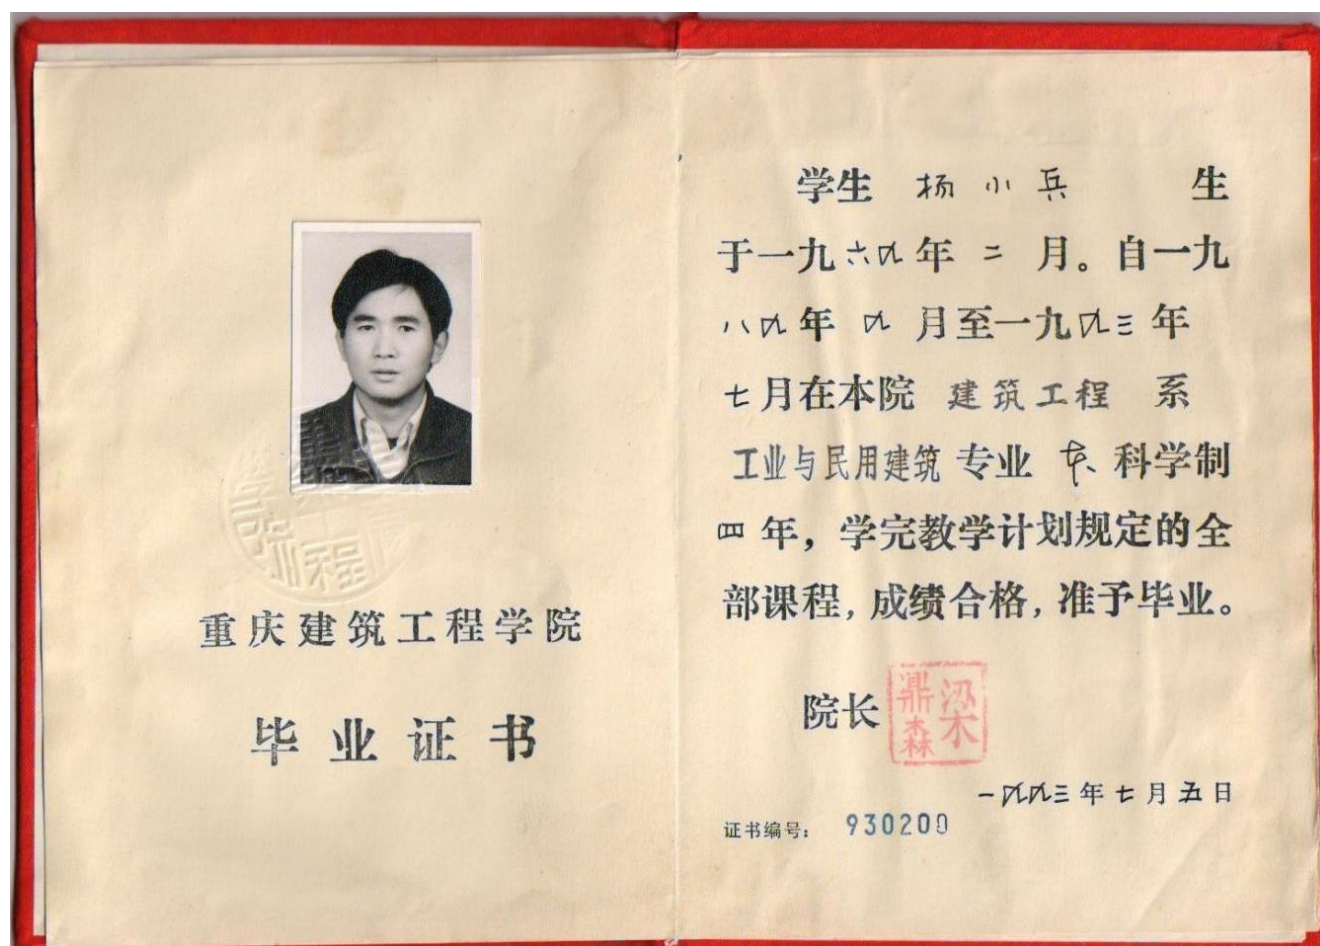 重庆建筑工程学院
毕业证书
学生 杨小兵 生
于一九六九年二月。自一九
八九年九月至一九九三年
七月在本院 建筑工程 系
工业与民用建筑 专业 本 科学制
四年，学完教学计划规定的全
部课程，成绩合格，准予毕业。
院长 梁鼎森
一九九三年七月五日
证书编号： 930200